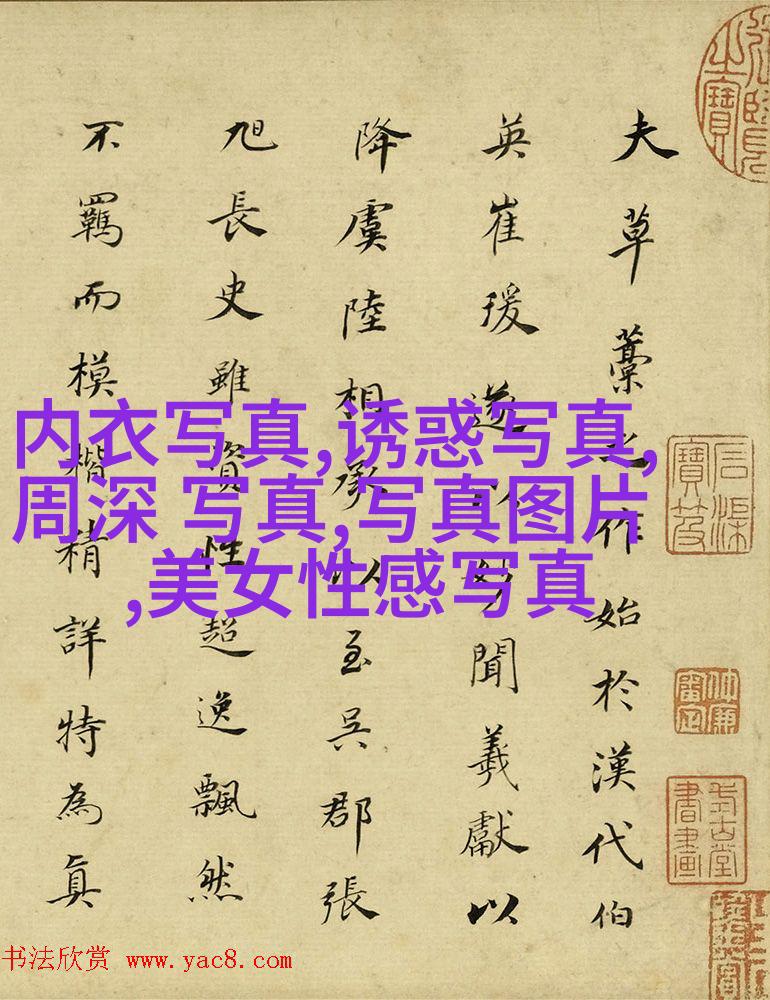 夫草藁之作始於漢代伯
英崔瑗遂以妙聞羲獻以
降虞陸相承以至吳郡張
旭長史雖資性超逸飄然
不羈而模楷精詳特為眞
内衣写真,诱惑写真,
周深 写真,写真图片
,美女性感写真
书法欣赏 www.yac8.com